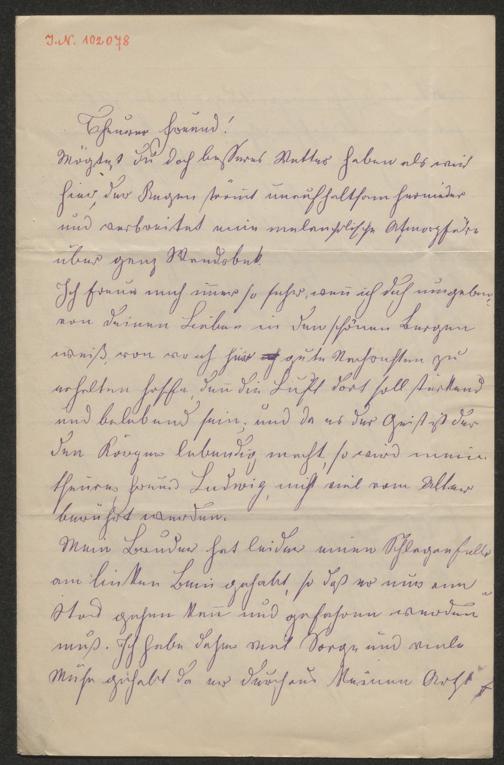 I.N. 102078
Theurer Freund!
Mögtest Du doch besseres Wetter haben als wir
hier, der Regen strömt unaufhaltsam hernieder
und verbreitet eine melancholische Atmosphäre
über ganz Wandsbek.
Ich freue mich immer so sehr, wenn ich Dich umgeben
von Deinen Lieben in den schönen Bergen
weiß, von wo ich hier gute Nachrichten zu
erhalten hoffe, denn die Luft dort soll stärkend
und belebend sein; und da es der Geist ist der
den Körper lebendig macht, so wird mein
theurer Freund Ludwig, nicht viel vom Alter
berührt werden.
Mein Bruder hat leider einen Schlaganfall
am linken Bein gehabt, so daß er nur am
Stock gehen kann und gefahren werden
muß. Ich habe daher viel Sorge und viele
Mühe gehabt da er durchaus keinen Arzt